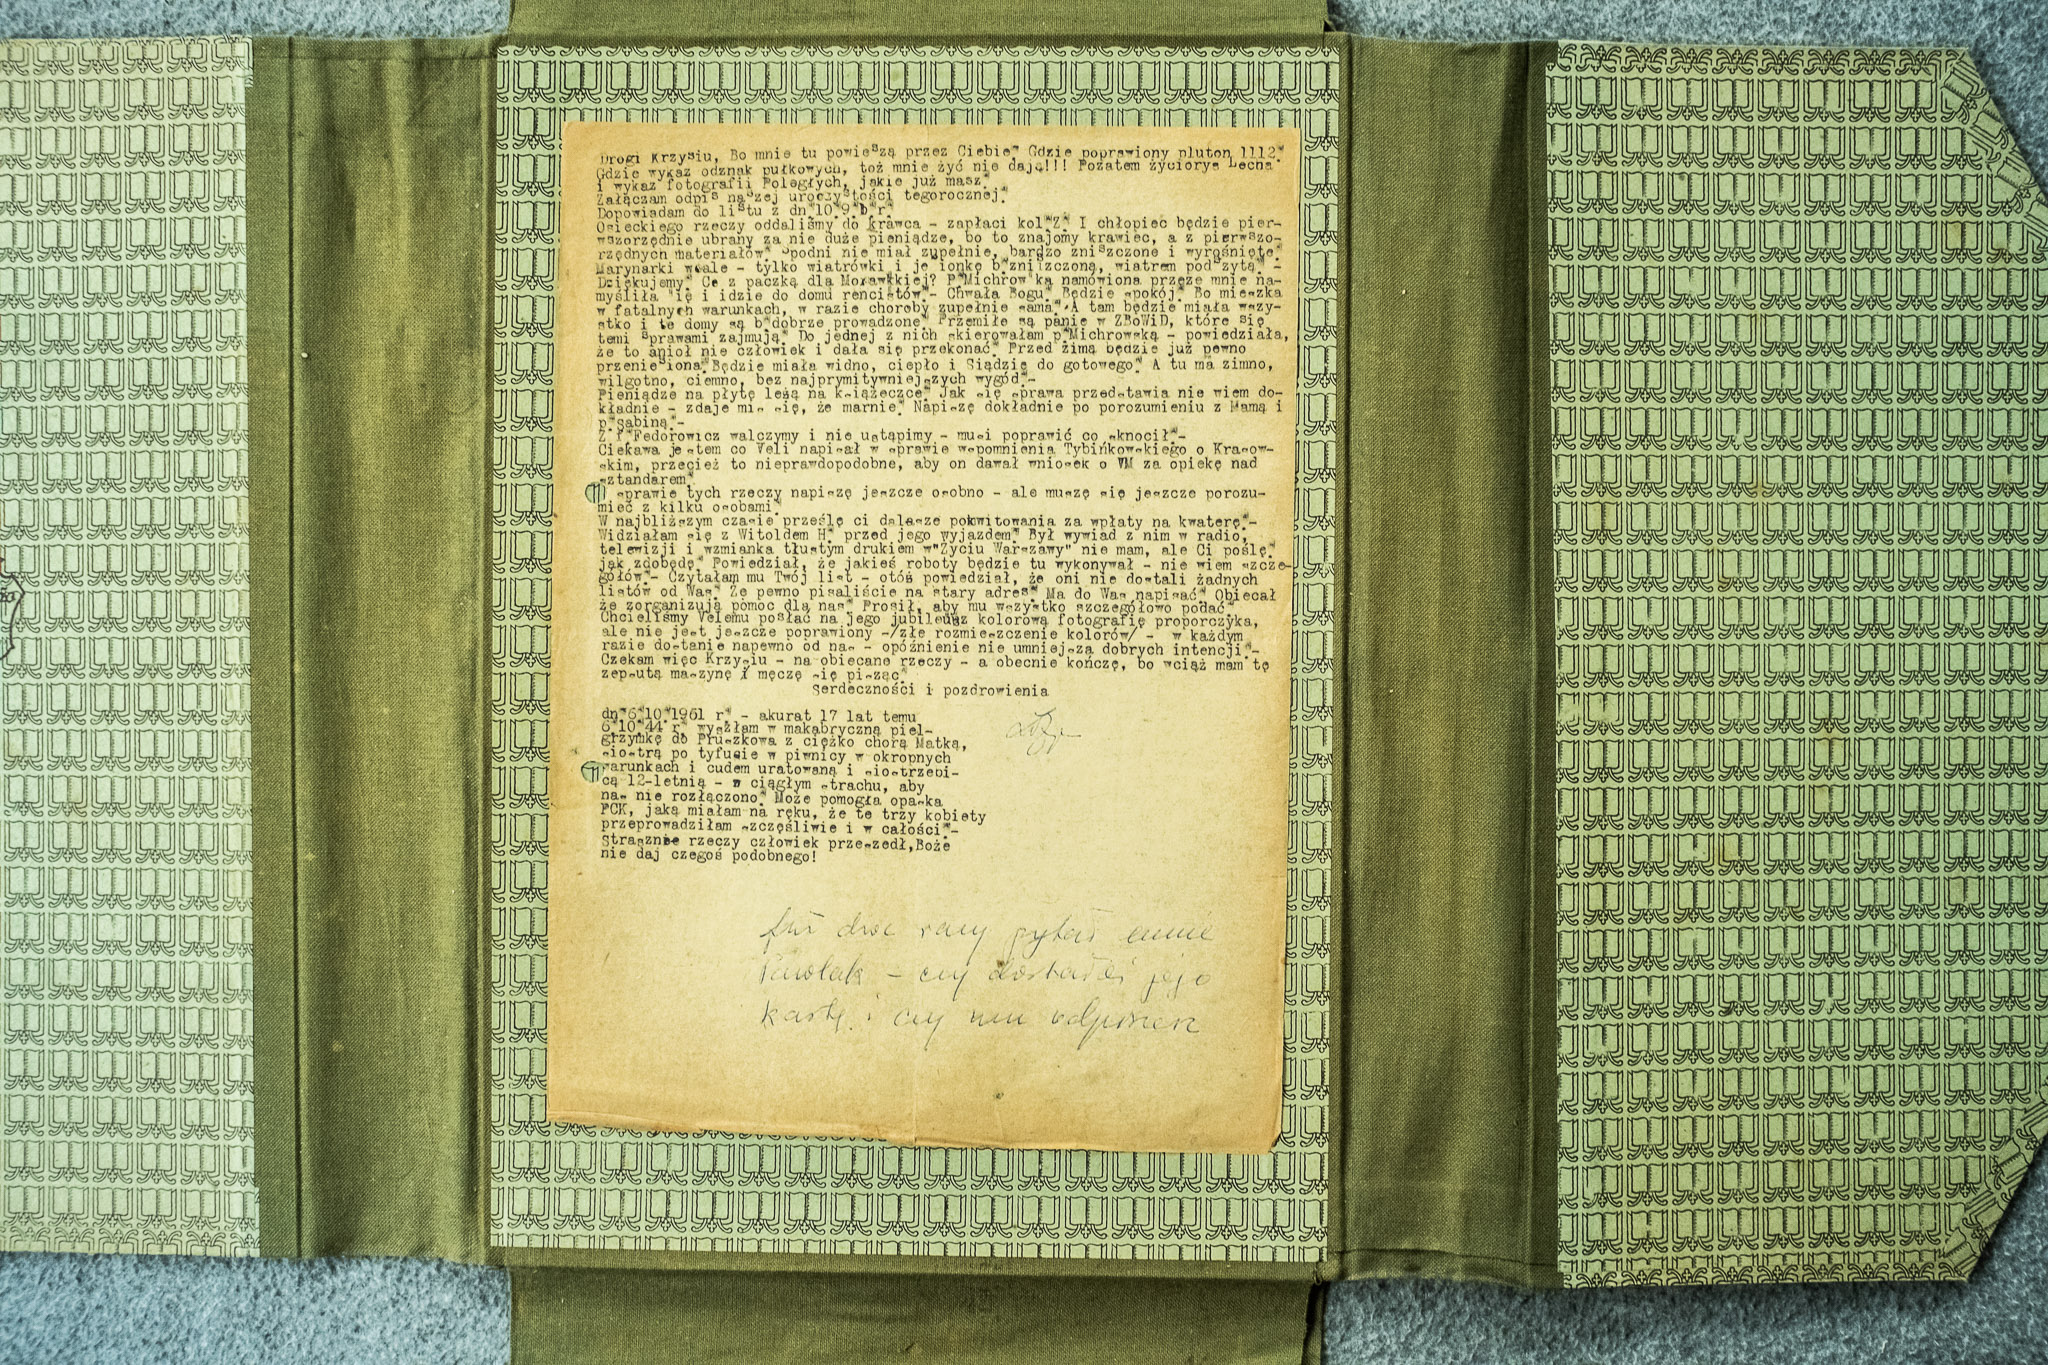 Drogi Krzysiu, Bo mnie tu powieszą przez Ciebie" Gdzie poprawiony pluton 1112"
Gdzie wykaz odznak pułkowych, toż mnie żyć nie dają!!! Pozatem życiorys Lecha
i wykaz fotografii Poległych, jakie już masz"
Załączam odpis naszej uroczystości tegorocznej"
Dopowiadam do listu z dn"10"9"b"r"
Osieckiego rzeczy oddaliśmy do krawca - zapłaci kol"Z" I chłopiec będzie pier-
wszorzędnie ubrany za nie duże pieniądze, bo to znajomy krawiec, a z pierwszo-
rzędnych materiałów" Spodni nie miał zupełnie, bardzo zniszczone i wyrośnięte"
Marynarki wcale - tylko wiatrówki i je ionkę b"zniszczoną, wiatrem pod zytą" -
Dziękujemy" Co z paczką dla Morawskiej? P"Michrow ka namówiona przeze mnie na-
myśliła się i idzie do domu rencistów"- Chwała Bogu" Będzie spokój" Bo mieszka
w fatalnych warunkach, w razie choroby zupełnie sama" A tam będzie miała wszy-
stko i te domy są b"dobrze prowadzone" Przemiłe są panie w ZBoWiD, które się
temi sprawami zajmują" Do jednej z nich skierowałam p"Michrowską - powiedziała,
że to anioł nie człowiek i dała się przekonać" Przed zimą będzie już pewno
przeniesiona" Będzie miała widno, ciepło i Siądzie do gotowego" A tu ma zimno,
wilgotno, ciemno, bez najprymitywniejszych wygód"-
Pieniądze na płytę leżą na książeczce" Jak się sprawa przedstawia nie wiem do-
kładnie - zdaje mis się, że marnie" Napiszę dokładnie po porozumieniu z Mamą i
p"Sabiną"-
Z I"Fedorowicz walczymy i nie ustąpimy - musi poprawić co sknocił"-
Ciekawa jestem co Veli napisał w sprawie wspomnienia Tybińkowskiego o Krasow-
skim, przecież to nieprawdopodobne, aby on dawał wniosek o VM za opiekę nad
sztandarem"
sprawie tych rzeczy napiszę jeszcze osobno - ale muszę się jeszcze porozu-
mieć z kilku osobami"
W najbliższym czasie prześlę ci dalsze pokwitowania za wpłaty na kwaterę"-
Widziałam się z Witoldem H" przed jego wyjazdem" Był wywiad z nim w radio,
telewizji i wzmianka tłustym drukiem w"Życiu Warszawy" nie mam, ale Ci poślę"
jak zdobędę" Powiedział, że jakieś roboty będzie tu wykonywał - nie wiem szcze-
gółów"- Czytałam mu Twój list - otóż powiedział, że oni nie dostali żadnych
listów od Was" Że pewno pisaliście na stary adres" Ma do Was napisać" Obiecał
że zorganizują pomoc dla nas" Prosił, aby mu wszystko szczegółowo podać"
Chcieliśmy Velemu posłać na jego jubileusz kolorową fotografię proporczyka,
ale nie jest jeszcze poprawiony -/złe rozmieszczenie kolorów/ - w każdym
razie dostanie napewno od nas - opóźnienie nie umniejsza dobrych intencji"-
Czekam więc Krzysiu - na obiecane rzeczy - a obecnie kończę, bo wciąż mam tę
zepsutą maszynę i męczę się pisząc"
Serdeczności i pozdrowienia
dn"6"10"1961 r" - akurat 17 lat temu
6"10"44 r" wyszłam w makabryczną piel-
grzymkę do Pruszkowa z ciężko chorą Matką,
siostrą po tyfusie w piwnicy w okropnych
warunkach i cudem uratowaną i siostrzeni-
cą 12-letnią - w ciągłym strachu, aby
nas nie rozłączono" Może pomogła opaska
PCK, jaką miałam na ręku, że te trzy kobiety
przeprowadziłam szczęśliwie i w całości"-
Straszne rzeczy człowiek przeszedł,Boże
nie daj czegoś podobnego!
Już dwa razy pytał mnie
Pawlak - czy dostałeś jego
kartę i czy mu odpiszesz